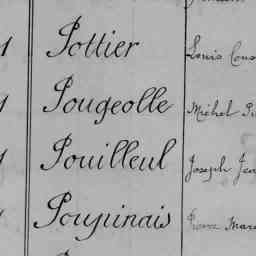 Pottier Louis
Pougeolle Michel
Pouilleul Joseph
Poupinais Pierre